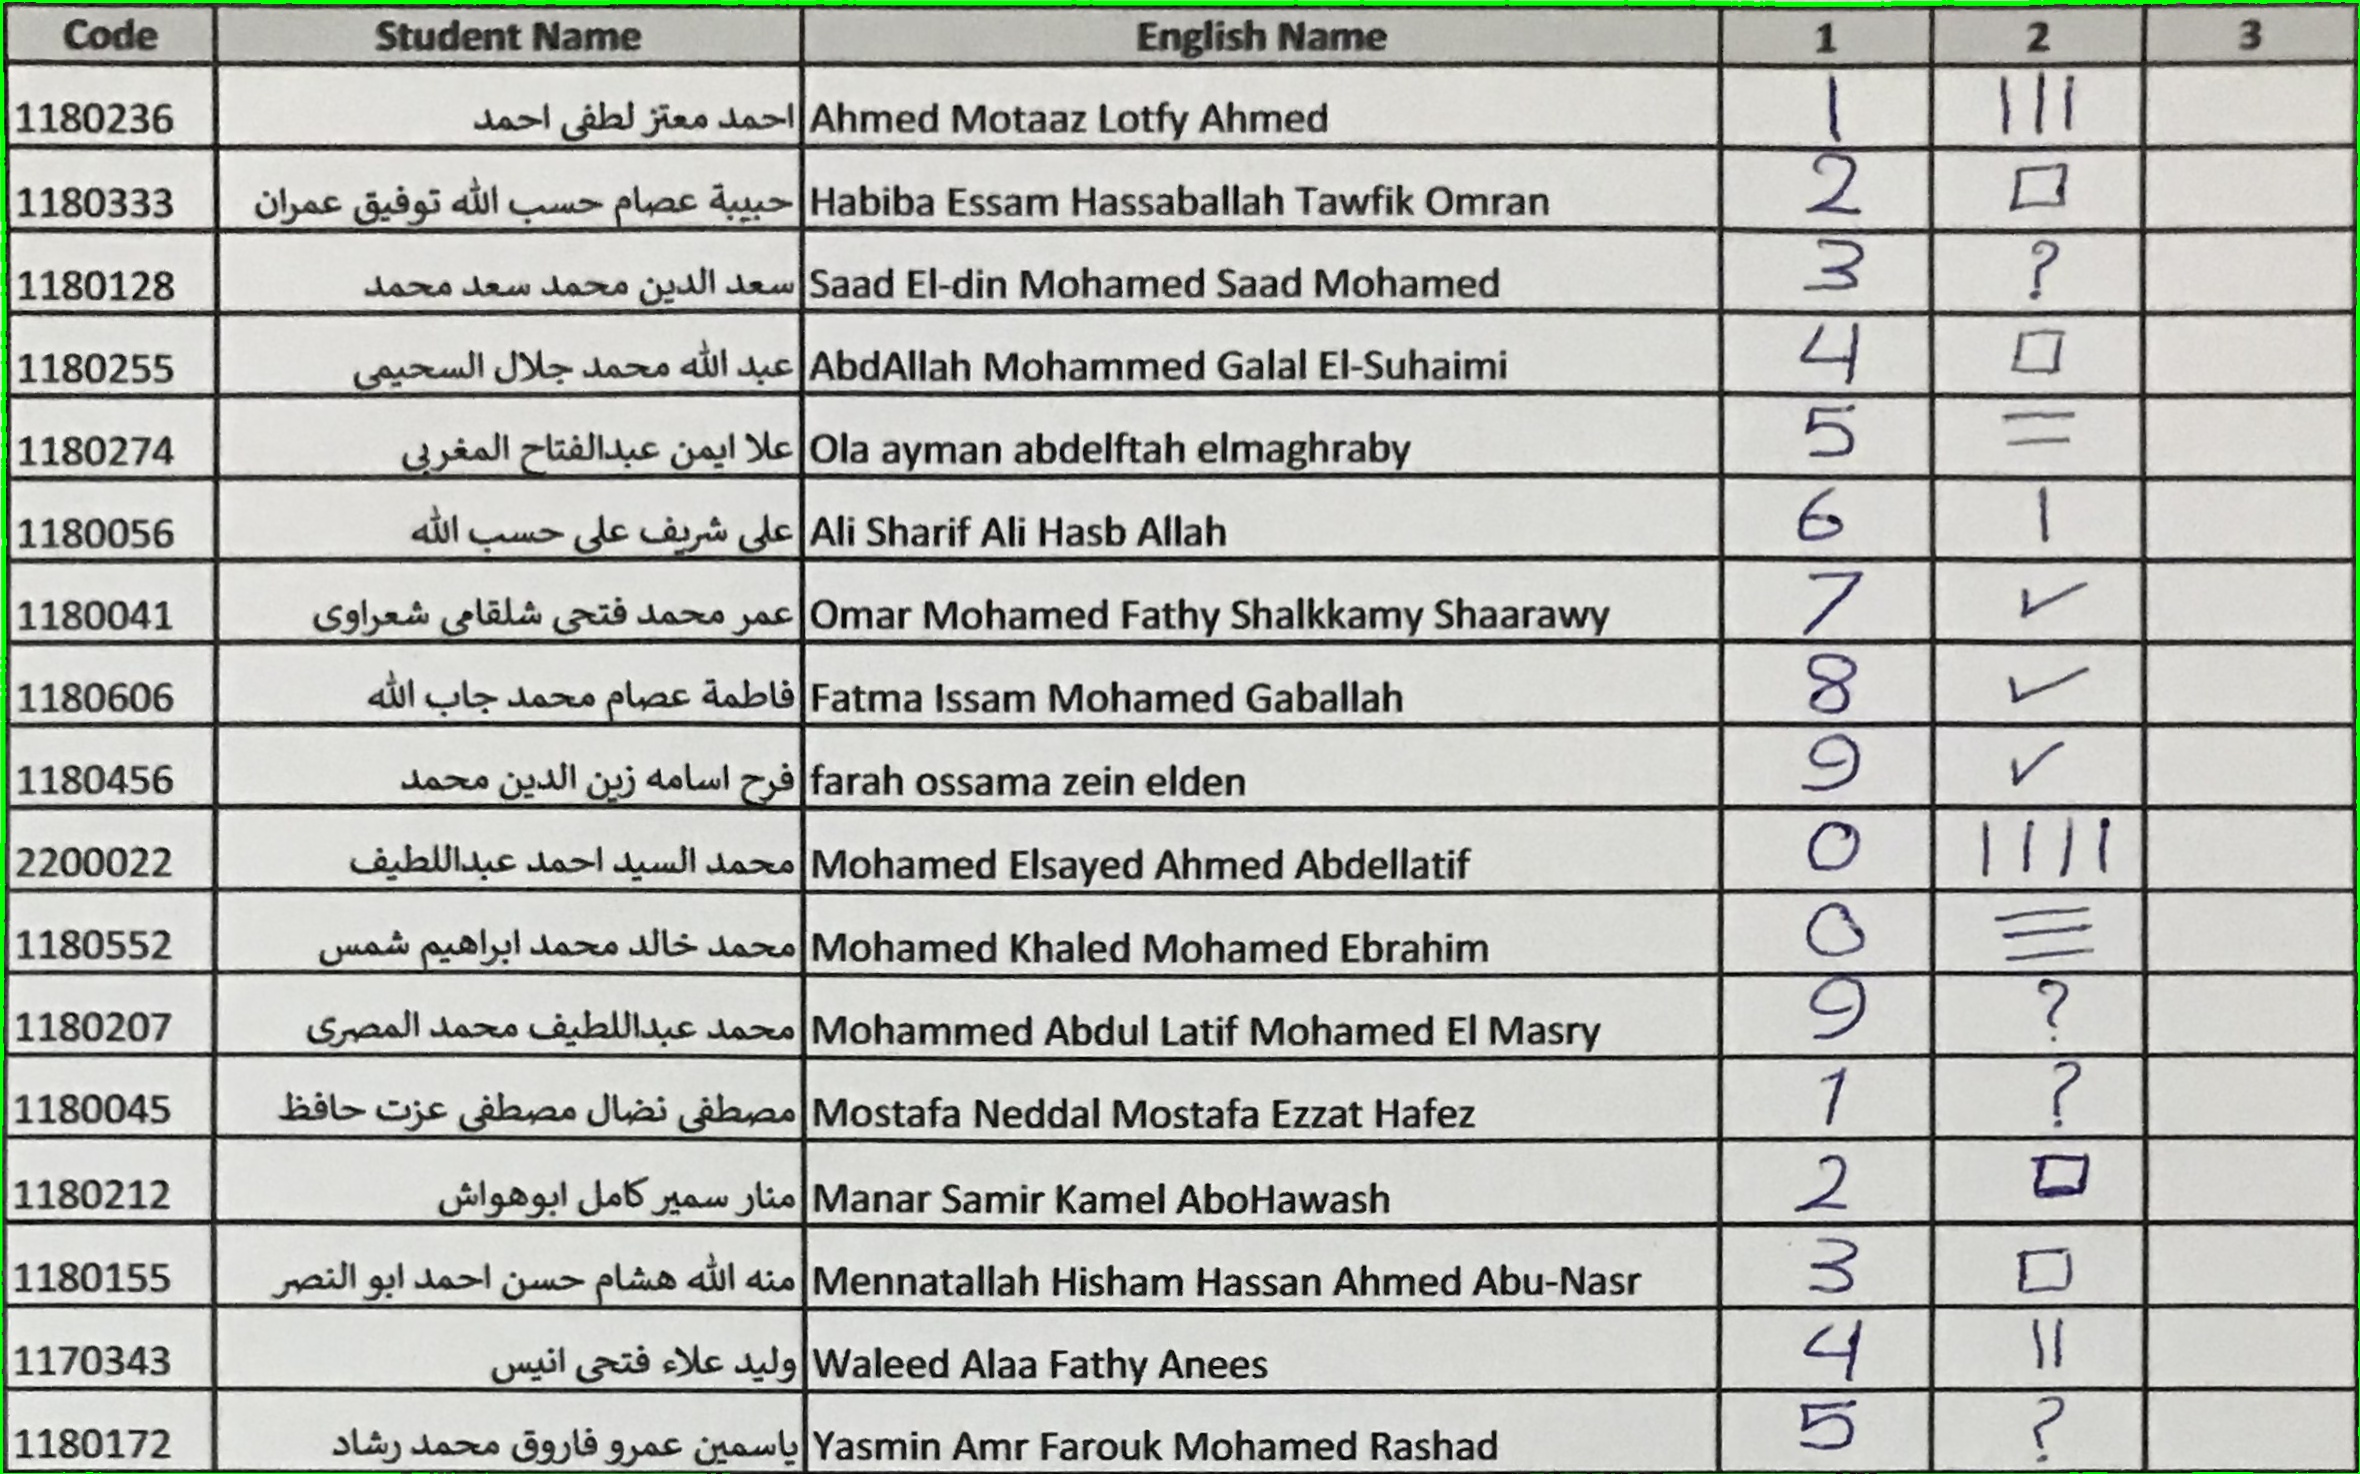 Code Student Name English Name 1 2 3
1180236 احمد معتز لطفى احمد Ahmed Motaaz Lotfy Ahmed 1 |||
1180333 حبيبة عصام حسب الله توفيق عمران Habiba Essam Hassaballah Tawfik Omran 2 □
1180128 سعد الدين محمد سعد محمد Saad El-din Mohamed Saad Mohamed 3 ?
1180255 عبد الله محمد جلال السحيمى AbdAllah Mohammed Galal El-Suhaimi 4 □
1180274 علا ايمن عبدالفتاح المغربى Ola ayman abdelftah elmaghraby 5 =
1180056 على شريف على حسب الله Ali Sharif Ali Hasb Allah 6 |
1180041 عمر محمد فتحى شلقامى شعراوى Omar Mohamed Fathy Shalkkamy Shaarawy 7 ✓
1180606 فاطمة عصام محمد جاب الله Fatma Issam Mohamed Gaballah 8 ✓
1180456 فرح اسامه زين الدين محمد farah ossama zein elden 9 ✓
2200022 محمد السيد احمد عبداللطيف Mohamed Elsayed Ahmed Abdellatif 0 ||||
1180552 محمد خالد محمد ابراهيم شمس Mohamed Khaled Mohamed Ebrahim 0 ≡
1180207 محمد عبداللطيف محمد المصرى Mohammed Abdul Latif Mohamed El Masry 9 ?
1180045 مصطفى نضال مصطفى عزت حافظ Mostafa Neddal Mostafa Ezzat Hafez 1 ?
1180212 منار سمير كامل ابوهواش Manar Samir Kamel AboHawash 2 □
1180155 منه الله هشام حسن احمد ابو النصر Mennatallah Hisham Hassan Ahmed Abu-Nasr 3 □
1170343 وليد علاء فتحى انيس Waleed Alaa Fathy Anees 4 ||
1180172 ياسمين عمرو فاروق محمد رشاد Yasmin Amr Farouk Mohamed Rashad 5 ?